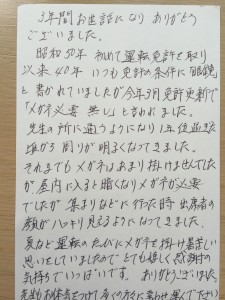 3年間お世話になり ありがとう
ございました。
昭和50年 初めて運転免許を取り
以来 40年 いつも免許の条件に眼鏡
と書かれていましたが今年3月 免許更新で
「メガネ必要 無し」と言われました。
先生の所に通うようになり1年後過ぎた
頃から 周りが明るくなってきました。
それまでもメガネはあまり掛けませんでした
が 屋内に入ると暗くなりメガネが必要
でしたが 集まりなどに行った時 出席者の
顔が ハッキリ見えるようになってきました。
夏など 運転のたびにメガネを掛け暑苦しい
思いをしていましたので とても嬉しく感謝の
気持ちでいっぱいです。 ありがとうございました。
先生もお体気をつけて 多くの方に